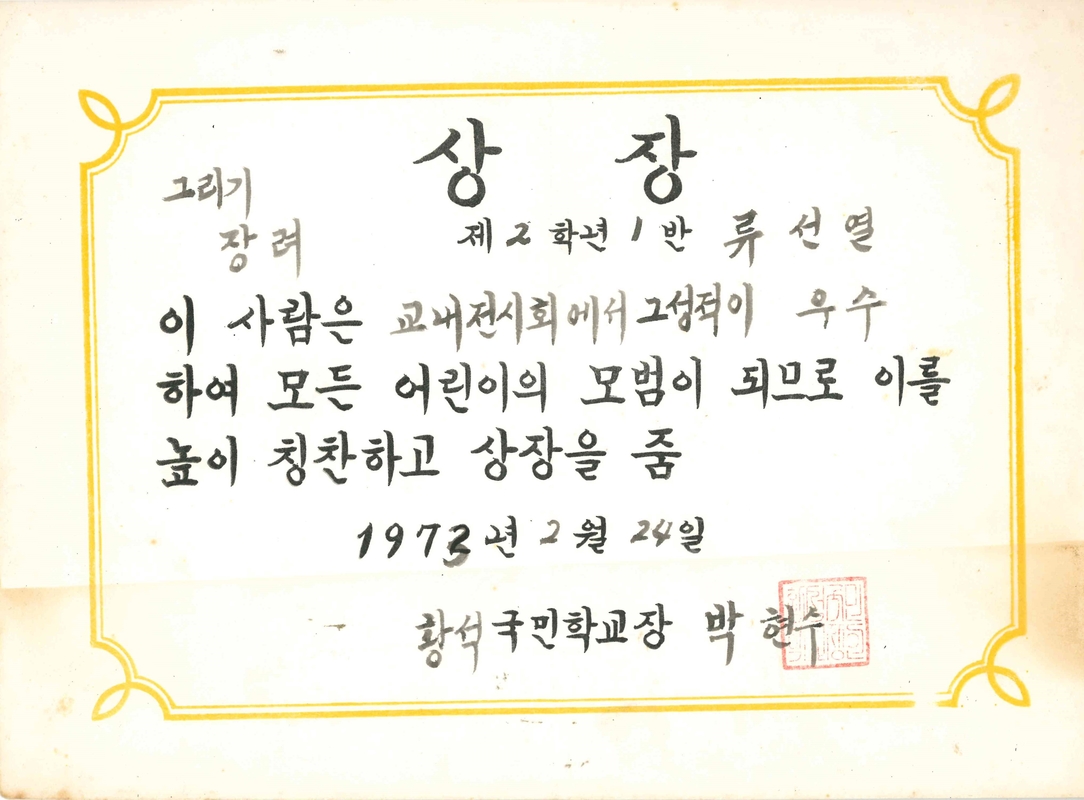 상 장
그리기
장려
제 2 학년 1 반 류 선 열
이 사람은 교내전시회에서 그성적이 우수
하여 모든 어린이의 모범이 되므로 이를
높이 칭찬하고 상장을 줌
1973년 2월 24일
황석국민학교장 박현수